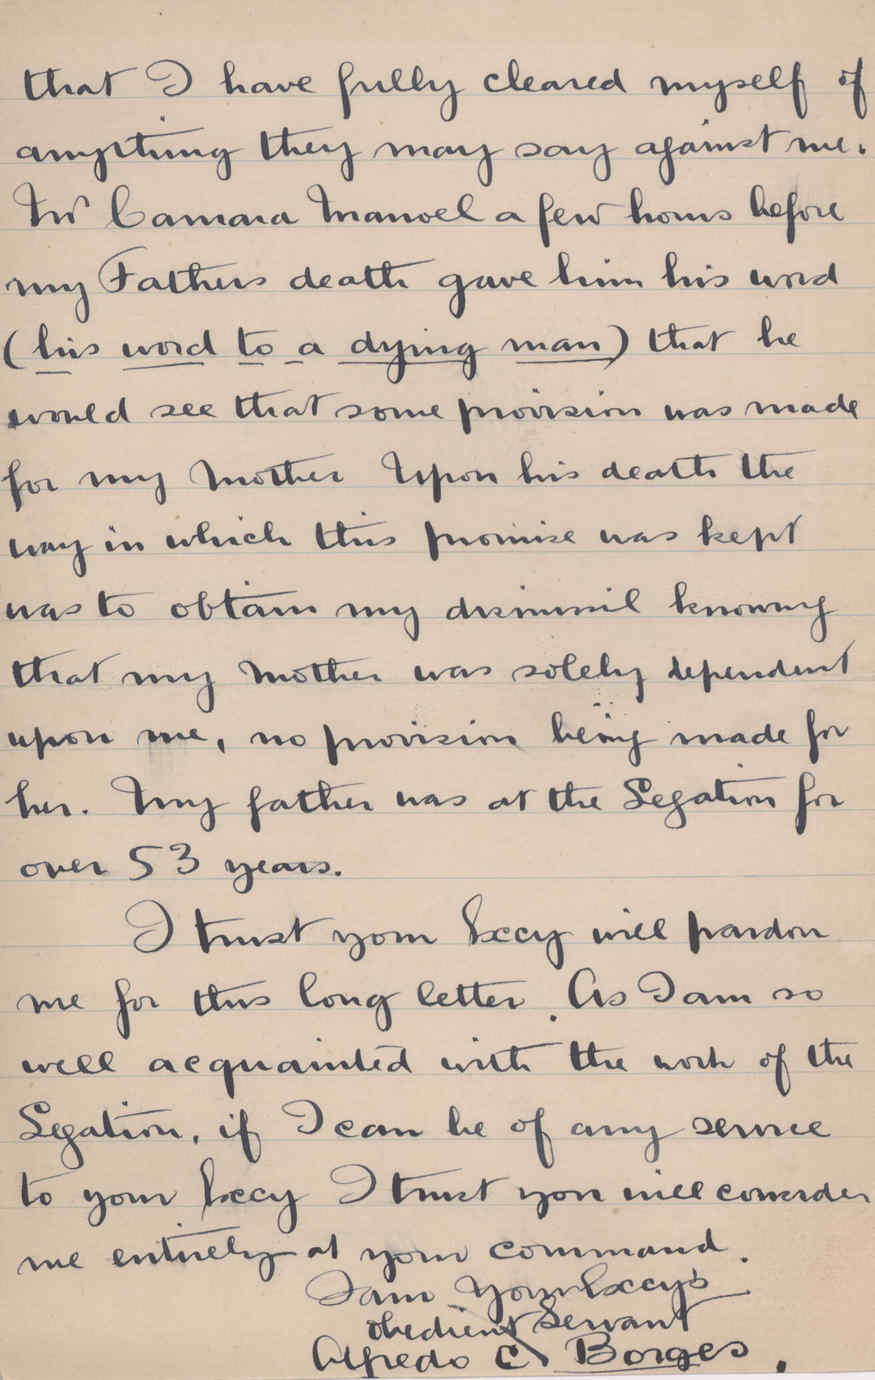 that I have fully cleared myself of
anything they may say against me.
Mr Camara Manoel a few hours before
my Fathers death gave him his word
(his word to a dying man) that he
would see that some provision was made
for my Mother Upon his death the
way in which this promise was kept
was to obtain my dismissil knowing
that my Mother was solely dependent
upon me, no provision being made for
her. My father was at the Legation for
over 53 years.
I trust your Exccy will pardon
me for this long letter. As I am so
well acquainted with the work of the
Legation, if I can be of any service
to your Exccy I trust you will consider
me entirely at your command.
I am Your Exccy's
obedient Servant
Alfredo C. Borges.